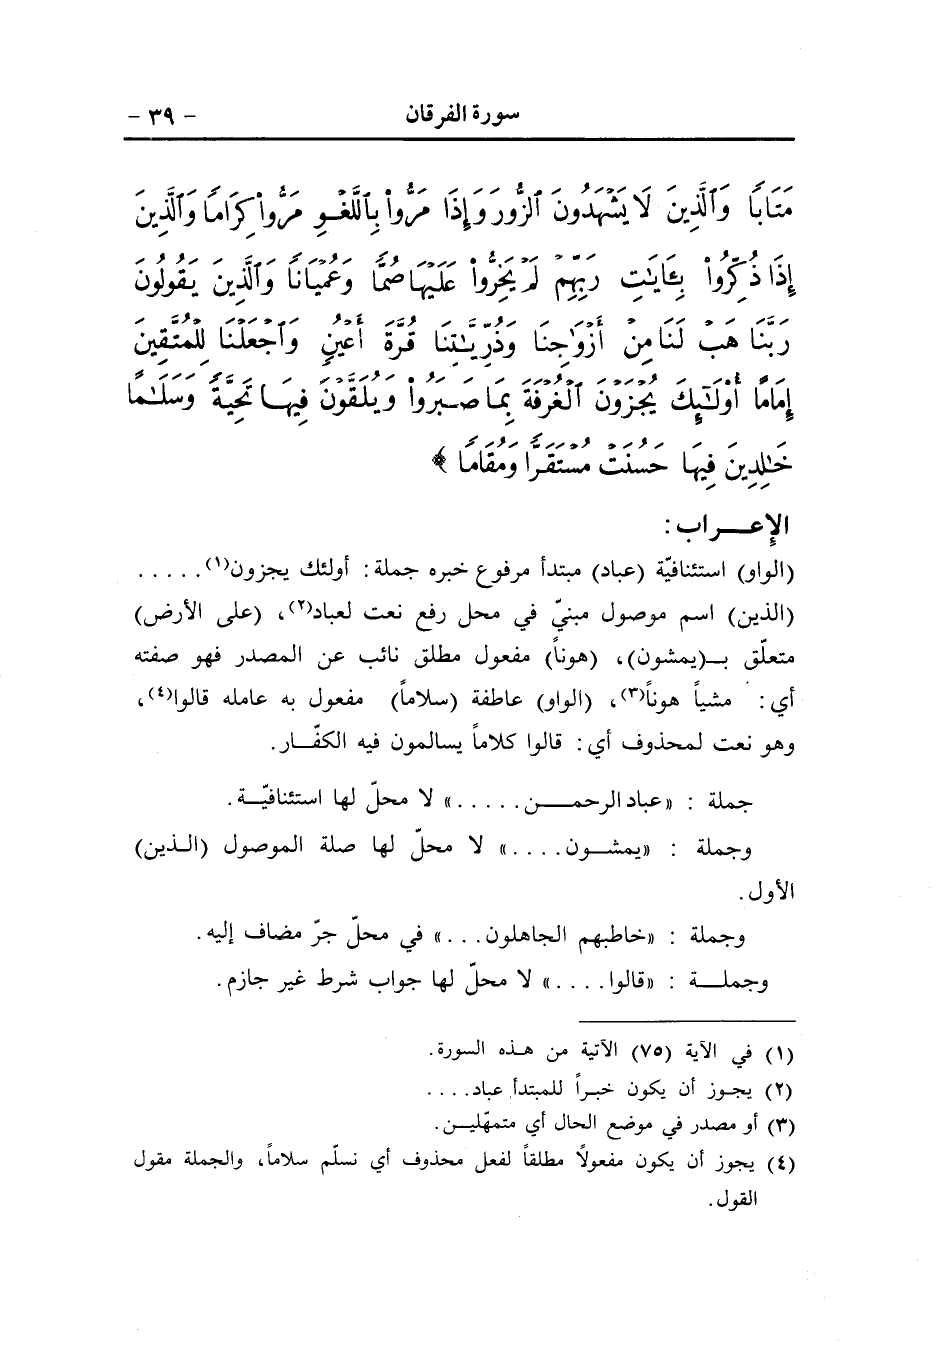 سورة الفرقان - ٣٩ -
مَتَابًا وَٱلَّذِينَ لَا يَشْهَدُونَ ٱلزُّورَ وَإِذَا مَرُّوا۟ بِٱللَّغْوِ مَرُّوا۟ كِرَامًا وَٱلَّذِينَ
إِذَا ذُكِّرُوا۟ بِـَٔايَٰتِ رَبِّهِمْ لَمْ يَخِرُّوا۟ عَلَيْهَا صُمًّا وَعُمْيَانًا وَٱلَّذِينَ يَقُولُونَ
رَبَّنَا هَبْ لَنَا مِنْ أَزْوَٰجِنَا وَذُرِّيَّٰتِنَا قُرَّةَ أَعْيُنٍ وَٱجْعَلْنَا لِلْمُتَّقِينَ
إِمَامًا أُو۟لَٰٓئِكَ يُجْزَوْنَ ٱلْغُرْفَةَ بِمَا صَبَرُوا۟ وَيُلَقَّوْنَ فِيهَا تَحِيَّةً وَسَلَٰمًا
خَٰلِدِينَ فِيهَا حَسُنَتْ مُسْتَقَرًّا وَمُقَامًا ﴾
الإعـــراب :
(الواو) استئنافيّة (عباد) مبتدأ مرفوع خبره جملة : أولئك يجزون(١) . . . . .
(الذين) اسم موصول مبنيّ في محل رفع نعت لعباد(٢)، (على الأرض)
متعلّق بـ(يمشون)، (هوناً) مفعول مطلق نائب عن المصدر فهو صفته
أي : مشياً هوناً(٣)، (الواو) عاطفة (سلاماً) مفعول به عامله قالوا(٤)،
وهو نعت لمحذوف أي : قالوا كلاماً يسالمون فيه الكفّـار.
جملة : «عباد الرحمـــن . . . . .» لا محلّ لها استئنافيّــة .
وجملة : «يمشــون . . . .» لا محلّ لها صلة الموصول (الـذين)
الأول .
وجملة : «خاطبهم الجاهلون . . .» في محلّ جرّ مضاف إليه .
وجملــة : «قالوا . . . .» لا محلّ لها جواب شرط غير جازم .
(١) في الآية (٧٥) الآتية من هـذه السورة .
(٢) يجـوز أن يكون خبـراً للمبتدأ عباد . . . .
(٣) أو مصدر في موضع الحال أي متمهّليــن .
(٤) يجوز أن يكون مفعولاً مطلقاً لفعل محذوف أي نسلّم سلاماً، والجملة مقول
القول .